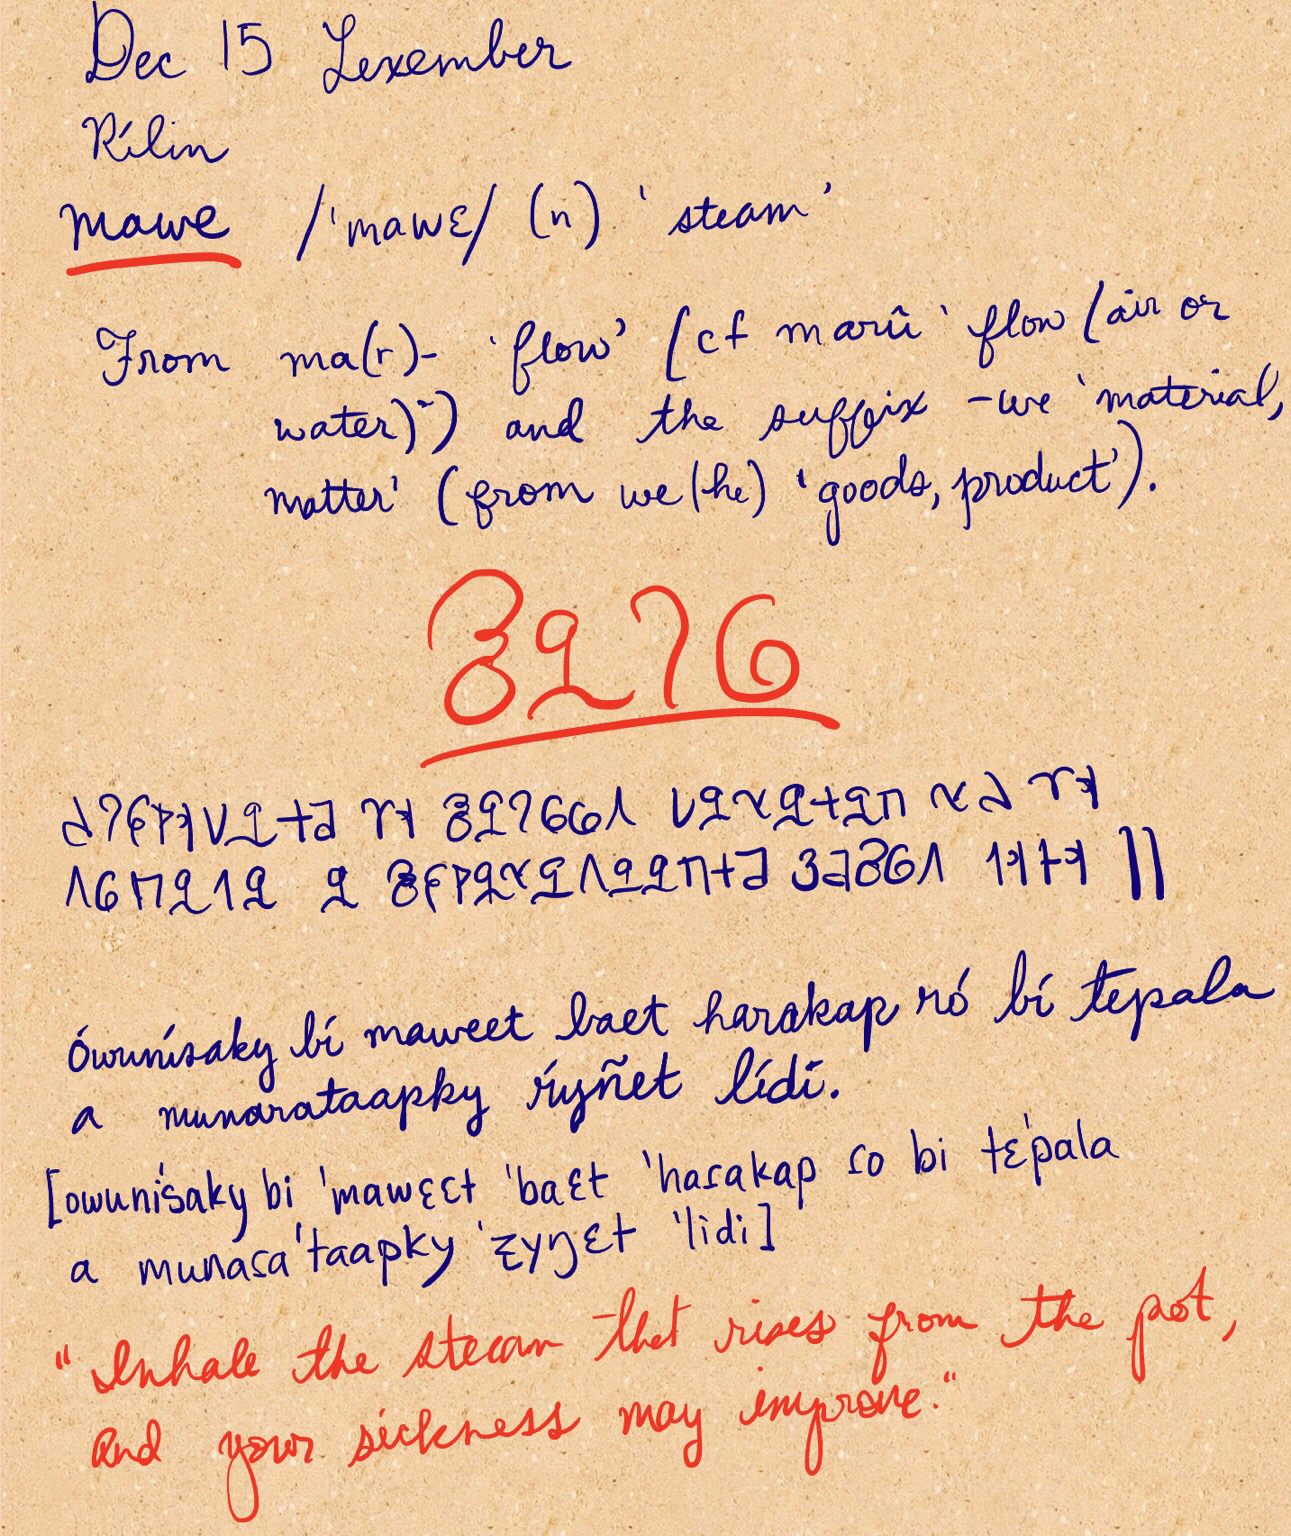 Dec 15 Lexember
Rílin
mawe /ˈmawɛ/ (n) 'steam'
From ma(r)- 'flow' (cf marû 'flow (air or
water)') and the suffix -we 'material,
matter' (from we(he) 'goods, product').
Ówunísaky bí maweet baet harakap ró bí tepala
a munarataapky ŕyñet lídi.
[owuniˈsaky bi ˈmawɛɛt ˈbaɛt ˈhaɾakap ɾo bi tɛˈpala
a munaɾaˈtaapky ˈʐyŋɛt ˈlidi]
"Inhale the steam that rises from the pot,
and your sickness may improve."